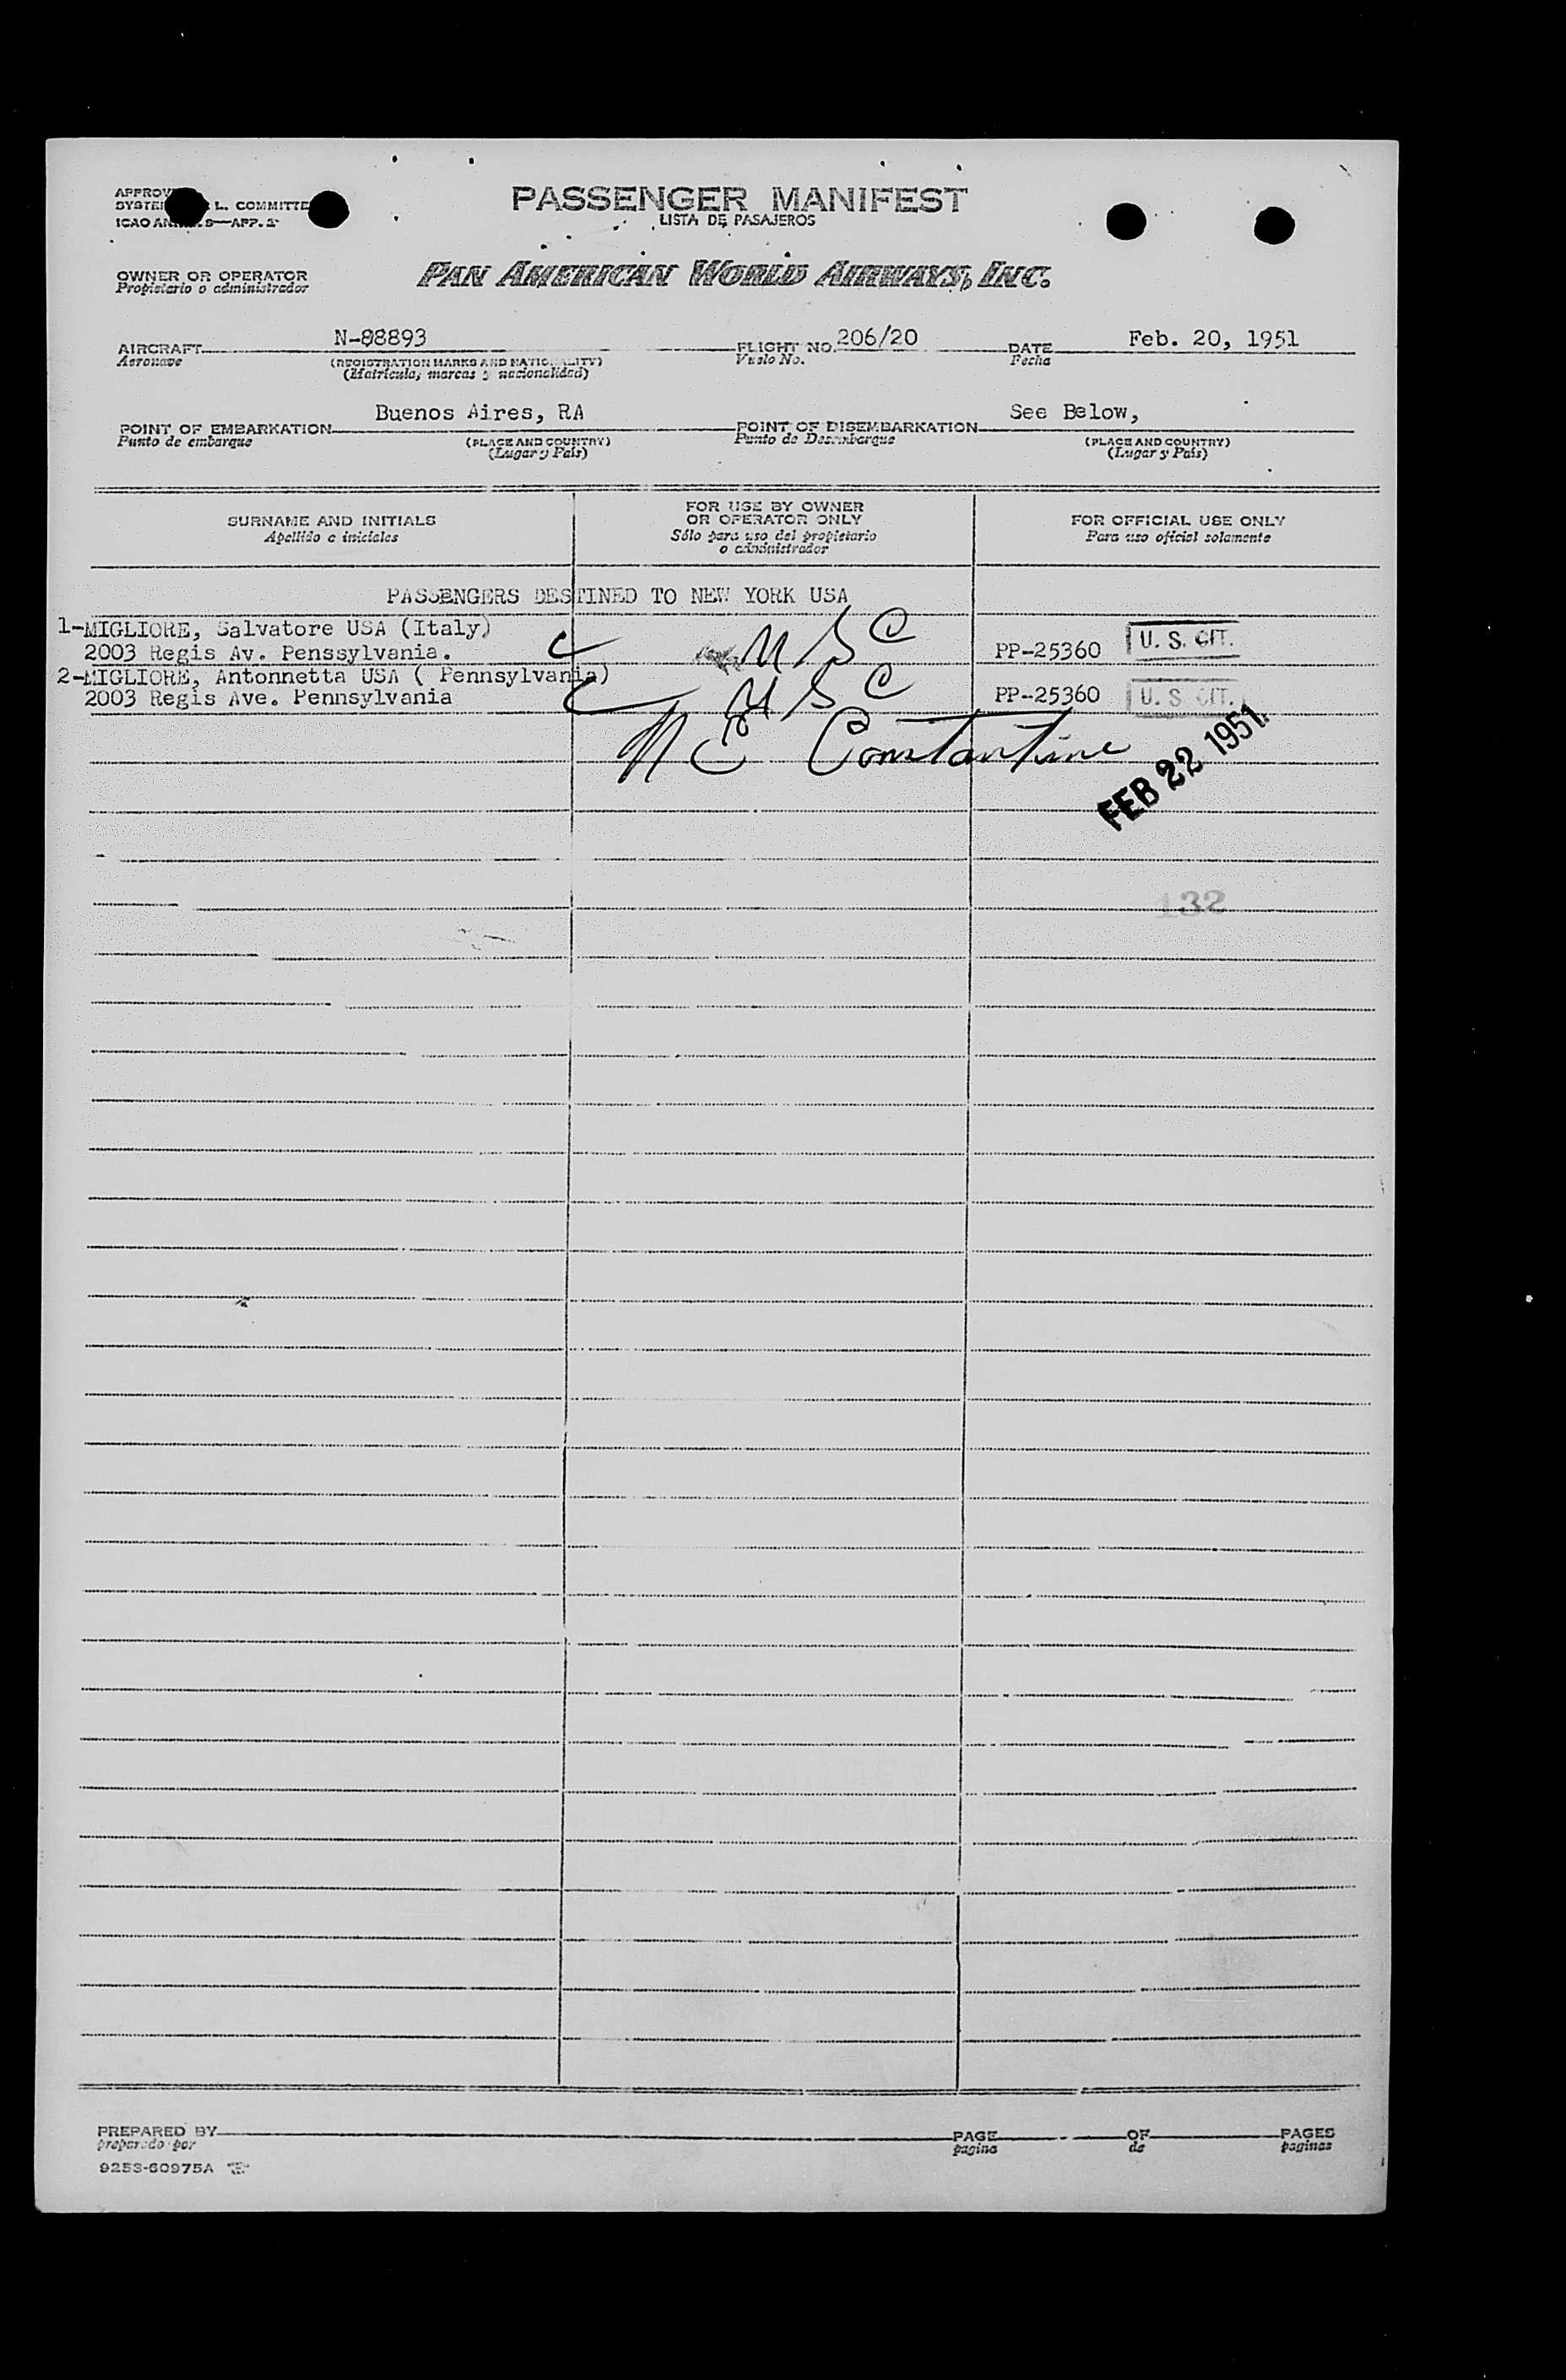 PASSENGER MANIFEST
LISTA DE PASAJEROS
L. COMMITTE
OWNER OR OPERATOR
Propietario o administrador
PAN AMERICAN WORLD AIRWAYS, INC.
AIRCRAFT N-88893 FLIGHT NO. 206/20 DATE Feb. 20, 1951
Aeronave (REGISTRATION MARKS AND NATIONALITY) Vuelo No. Fecha
(Matrícula, marcas y nacionalidad)
POINT OF EMBARKATION Buenos Aires, RA POINT OF DISEMBARKATION See Below,
Punto de embarque (PLACE AND COUNTRY) Punto de Desembarque (PLACE AND COUNTRY)
(Lugar y País) (Lugar y País)
SURNAME AND INITIALS FOR USE BY OWNER OR OPERATOR ONLY FOR OFFICIAL USE ONLY
Apellido e iniciales Sólo para uso del propietario o administrador Para uso oficial solamente
PASSENGERS DESTINED TO NEW YORK USA
1-MIGLIORE, Salvatore USA (Italy)
2003 Regis Av. Penssylvania. USC PP-25360 U. S. CIT.
2-MIGLIORE, Antonnetta USA ( Pennsylvania)
2003 Regis Ave. Pennsylvania USC PP-25360 U. S. CIT.
N E Constantine
FEB 22 1951
132
PREPARED BY PAGE OF PAGES
preparado por pagina de paginas
9253-60975A